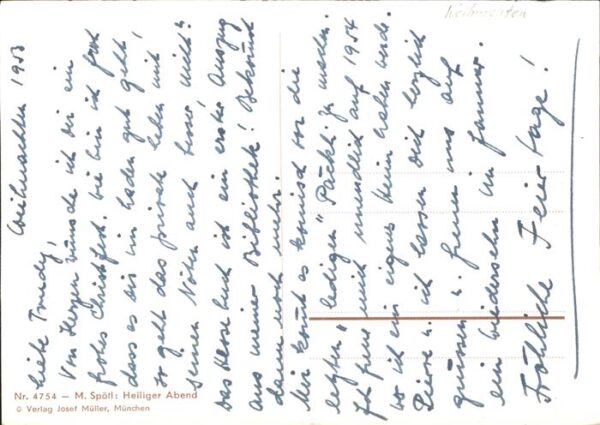 Weihnachten
Weihnachten 1953
Liebe Trudy!
Von Herzen wünsche ich dir ein
frohes Christfest. Wie bin ich froh
dass es dir im gut geht!
So geht das private Leben mit
seinen Nöten auch besser nicht?
Das Hesse buch ist ein erster Auszug
aus meiner Bibliothek! Bekommst
dann noch mehr.
Mir kommt es komisch vor die
letzten "ledigen" Päckli zu machen.
Ich freue mich unendlich auf 1954
wo ich ein eigenes Heim haben werde.
Pierre u. ich lassen dich herzlich
grüssen u. freuen uns auf
ein Wiedersehn im Januar.
Fröhliche Feiertage!
Nr. 4754 — M. Spötl: Heiliger Abend
© Verlag Josef Müller, München